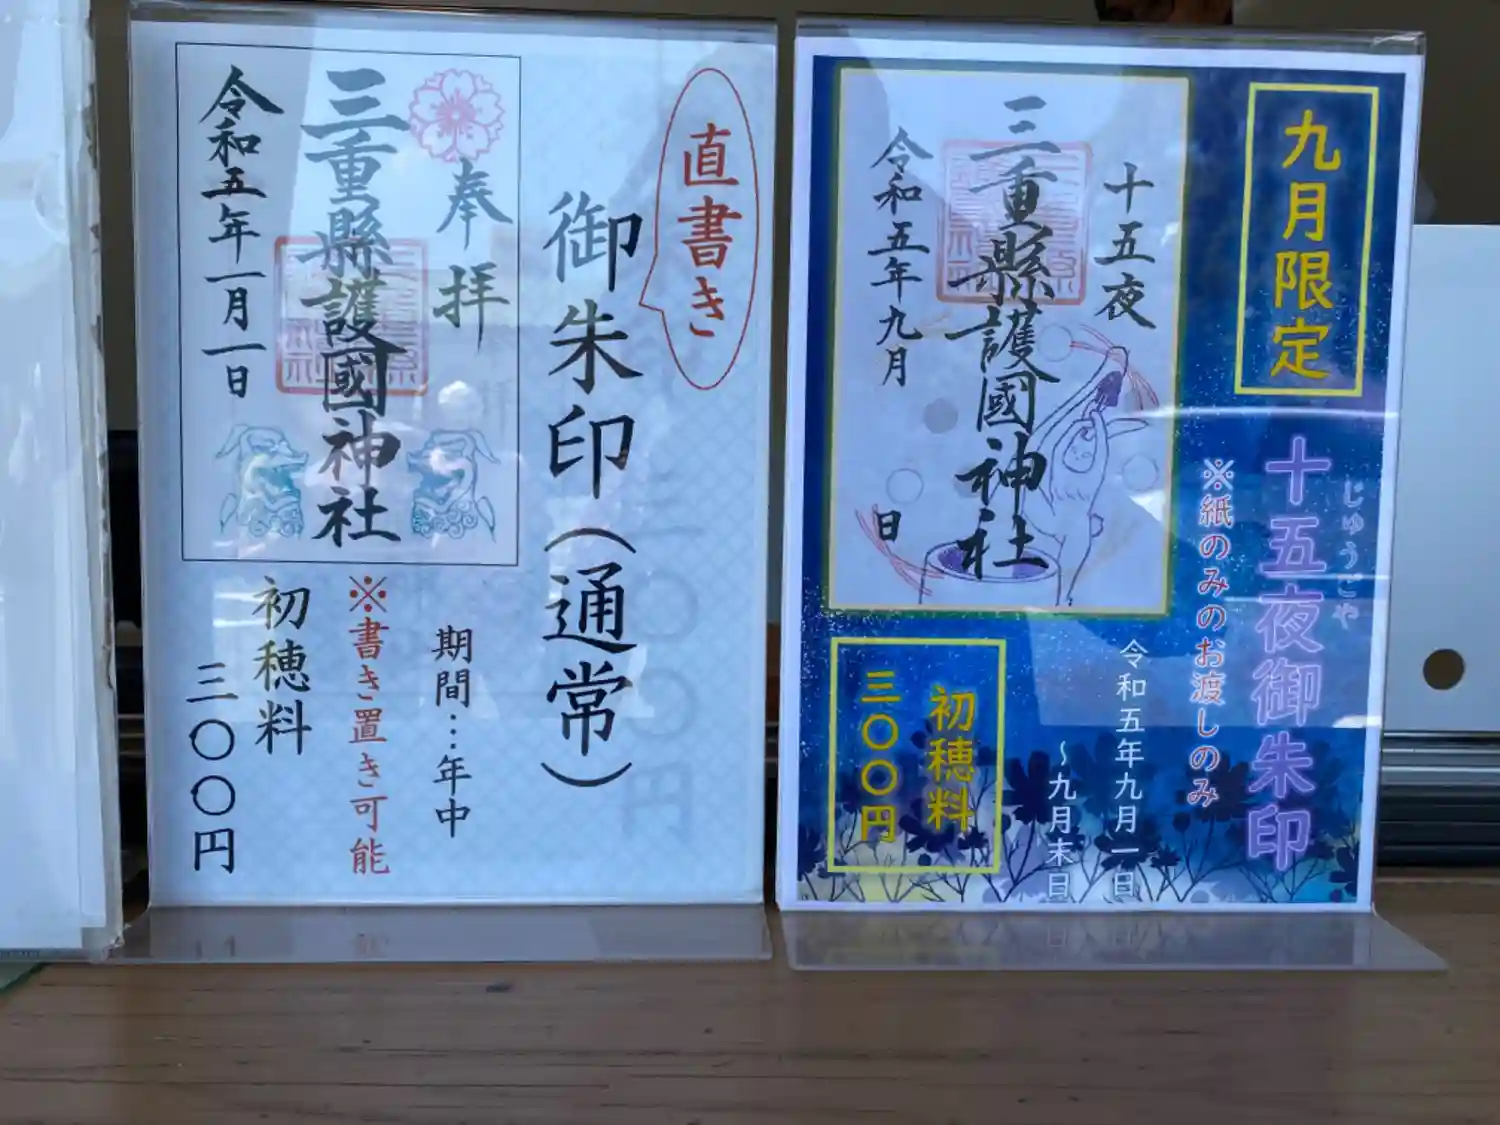 直書き
御朱印(通常)
奉拝
三重縣護國神社
令和五年一月一日
期間…年中
※書き置き可能
初穂料
三〇〇円
九月限定
十五夜御朱印
じゅうごや
※紙のみのお渡しのみ
十五夜
三重縣護國神社
令和五年九月
日
令和五年九月一日
~九月末日
初穂料
三〇〇円